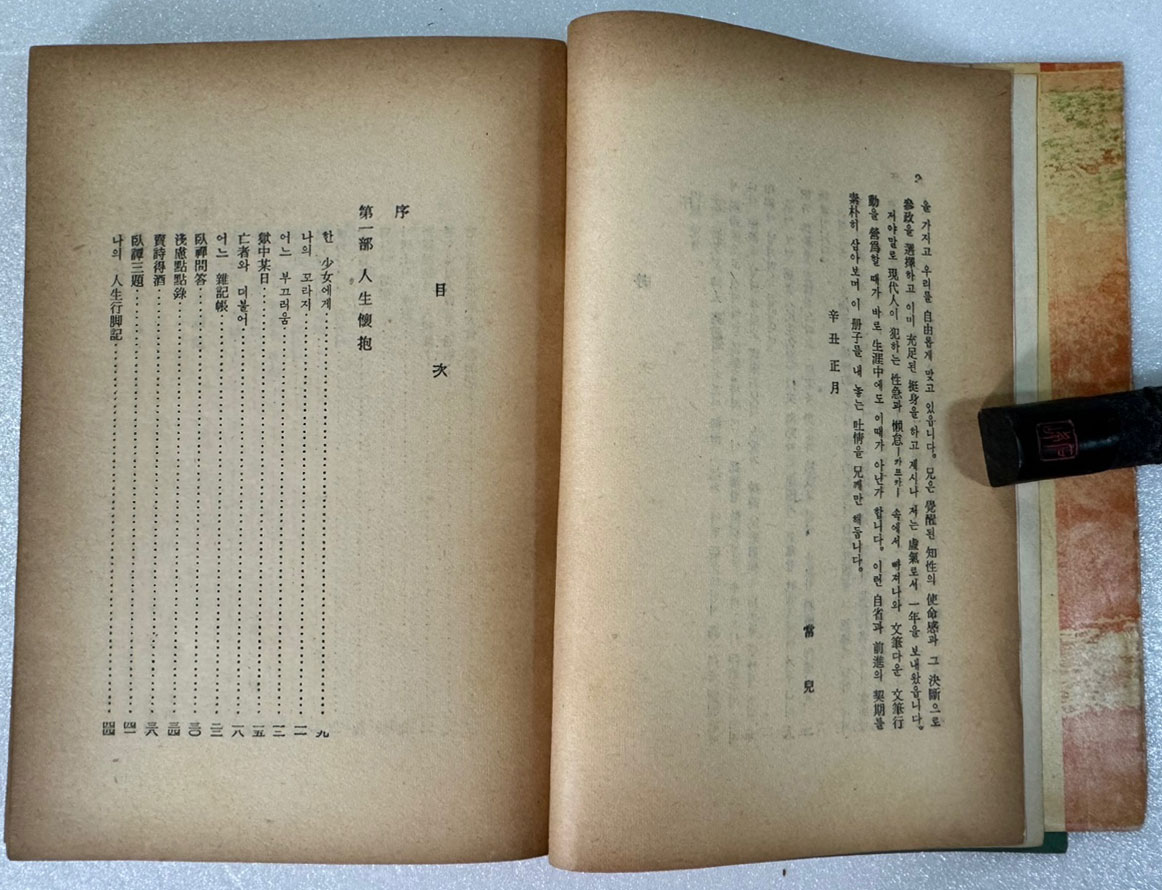 2
을 가지고 우리를 自由롭게 맞고 있읍니다. 兄은 覺醒된 知性의 使命感과 그 決斷으로
參政을 選擇하고 이미 充足된 挺身을 하고 계시나 저는 虛氣로서 一年을 보내왔읍니다.
저야말로 現代人이 犯하는 性急과 懶怠—카프카— 속에서 빠져나와 文筆다운 文筆行
動을 營爲할 때가 바로 生涯中에도 이때가 아닌가 합니다. 이런 自省과 前進의 契期를
素朴히 삼아보며 이 册子를 내 놓는 吐情을 兄께만 해둡니다.
辛丑正月
常兒
目次
序
第一部 人生懷抱
한 少女에게……九
나의 꼬라지……一一
어느 부끄러움……一三
獄中某日……一五
亡者와 더불어……一八
어느 雜記帳……二三
臥禪問答……三〇
淺慮點點錄……三四
賣詩得酒……三六
臥譚三題……四一
나의 人生行脚記……四四